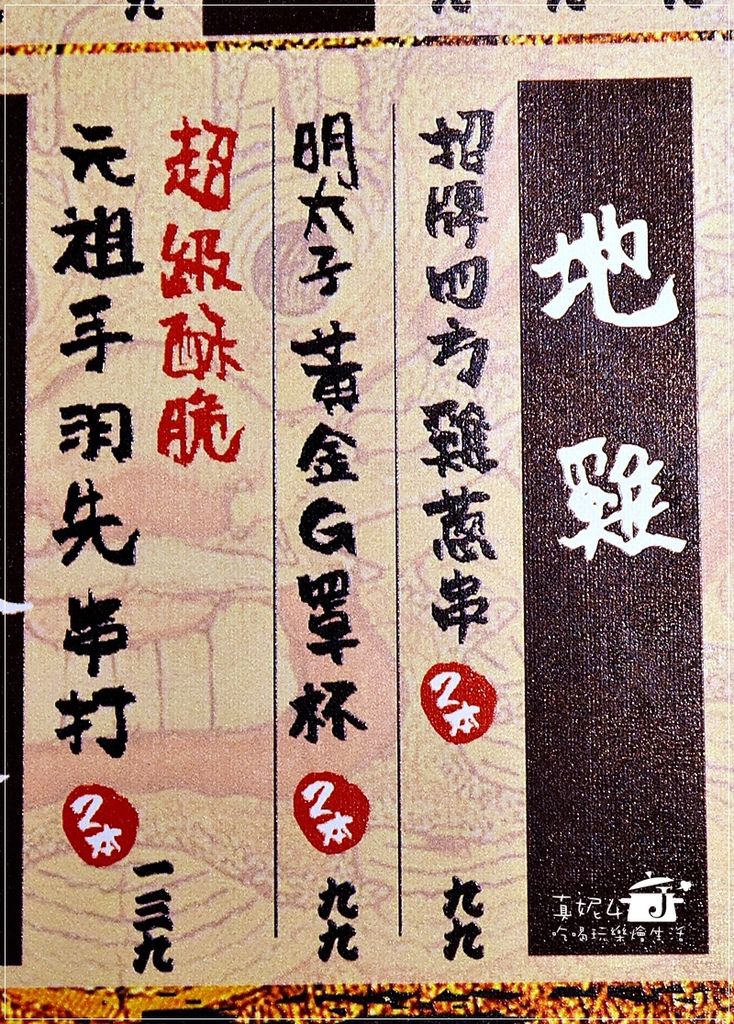 地雞
招牌四方雞蔥串
2本
九九
明太子黃金G罩杯
2本
九九
超級酥脆
元祖手羽先串打
2本
一三九
真妮4
吃喝玩樂燴生活